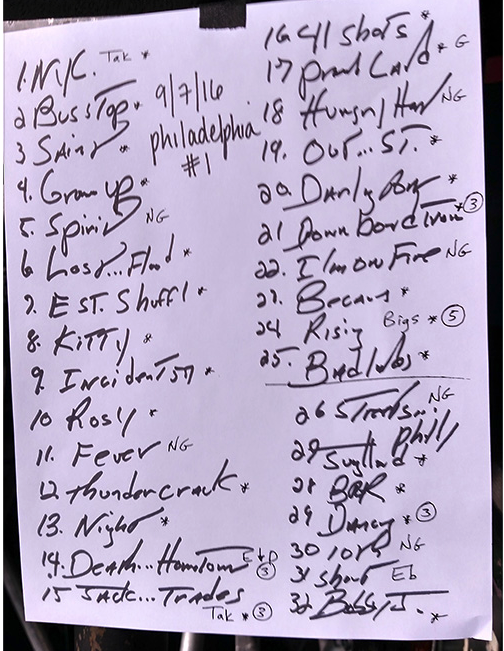 1. NYC. Tak *
2 Bus Stop *
3 Saint *
4. Grow up *
5. Spirit NG
6 Lost...Flood *
7. E ST. Shuffl *
8. KITTY *
9. Incident 57 *
10 Rosy *
11. Fever NG
12 thundercrack *
13. Night *
14. Death...Hometown E↓D ③
15 JACK...Trades
Tak * ③
9/7/16
philadelphia
#1
16 41 shots *
17 proud Card * G
18 Hungry Hart NG
19. OUT...ST. *
20 Darlington *
21 Down bound train * ③
22. I'm on Fire NG
23. Becaus *
24 Rising Bigs * ⑤
25. Badlands *
26 Streets... NG
Philly
27 Jungland *
28 BOR *
29 Dancing * ③
30 10th NG
31 shout Eb
32 Bobby J. *